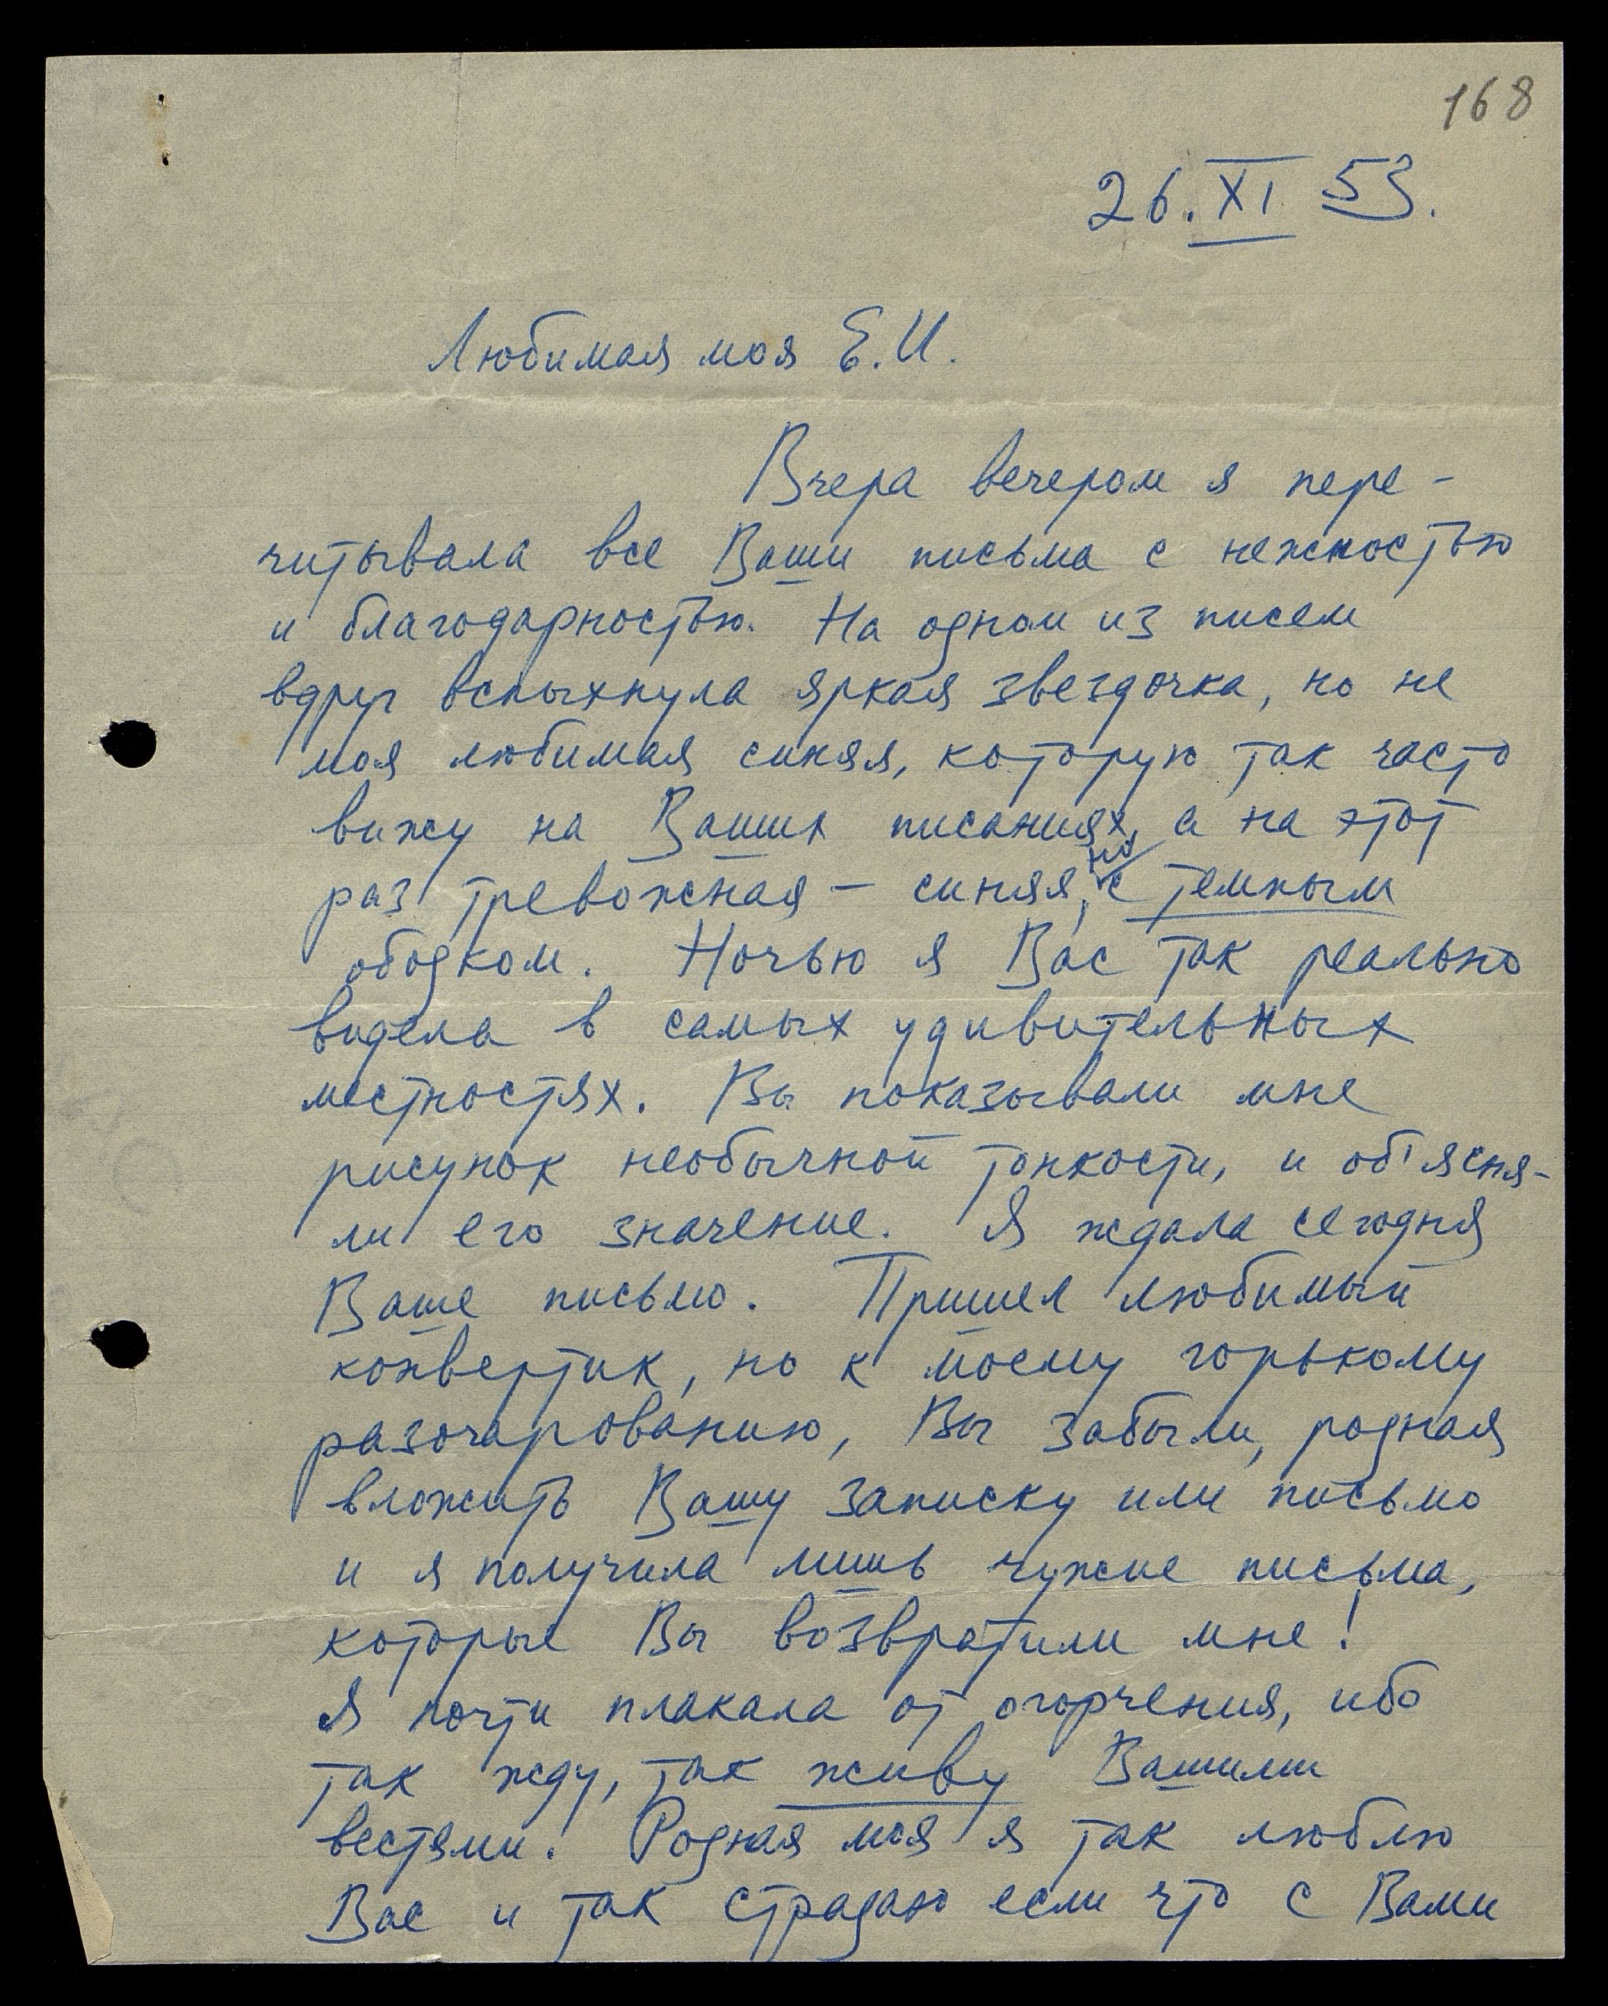 168
26. XI 53.
Любимая моя Е.И.
Вчера вечером я пере-
читывала все Ваши письма с нежностью
и благодарностью. На одном из писем
вдруг вспыхнула яркая звездочка, но не
моя любимая синяя, которую так часто
вижу на Ваших писаниях, а на этот
раз тревожная – синяя, но с темным
ободком. Ночью я Вас так реально
видела в самых удивительных
местностях. Вы показывали мне
рисунок необычной тонкости, и об'ясня-
ли его значение. Я ждала сегодня
Ваше письмо. Пришел любимый
конвертик, но к моему горькому
разочарованию, Вы забыли, родная
вложить Вашу записку или письмо
и я получила лишь чужие письма,
которые Вы возвратили мне!
Я почти плакала от огорчения, ибо
так жду, так живу Вашими
вестями! Родная моя я так люблю
Вас и так страдаю если что с Вами